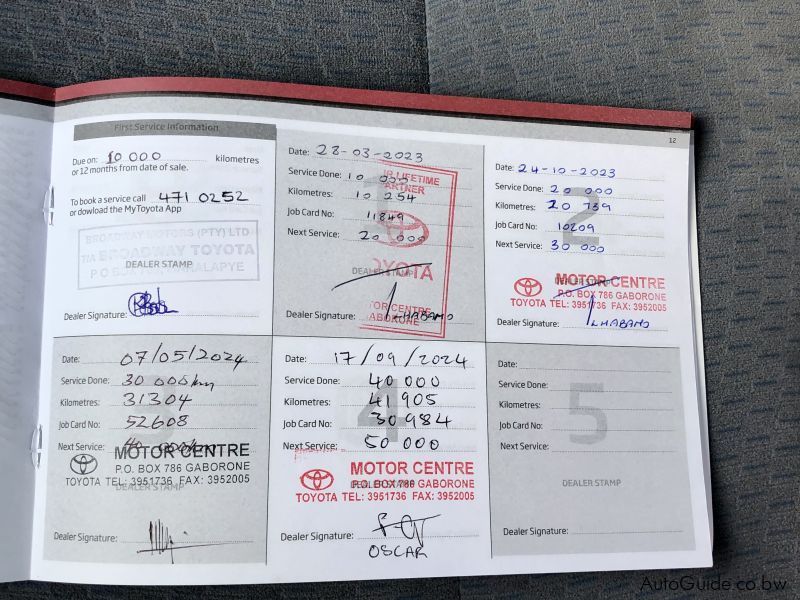 12
First Service Information
Due on: 10 000 kilometres
or 12 months from date of sale.
To book a service call 471 0252
or dowload the MyToyota App
BROADWAY MOTORS (PTY) LTD
T/A BROADWAY TOYOTA
DEALER STAMP
P O BOX PALAPYE
Dealer Signature:
Date: 28-03-2023
Service Done: 10 000
Kilometres: 10 254
Job Card No: 11849
Next Service: 20 000
LIFETIME
PARTNER
DEALER STAMP
TOYOTA
MOTOR CENTRE
GABORONE
Dealer Signature: LHABANO
2
Date: 24-10-2023
Service Done: 20 000
Kilometres: 20 739
Job Card No: 10209
Next Service: 30 000
DEALER STAMP
MOTOR CENTRE
P.O. BOX 786 GABORONE
TOYOTA TEL: 3951736 FAX: 3952005
Dealer Signature: LHABANO
Date: 07/05/2024
Service Done: 30 000km
Kilometres: 31304
Job Card No: 52608
Next Service: 40 000km
MOTOR CENTRE
P.O. BOX 786 GABORONE
TOYOTA TEL: 3951736 FAX: 3952005
DEALER STAMP
Dealer Signature:
4
Date: 17/09/2024
Service Done: 40 000
Kilometres: 41 905
Job Card No: 30984
Next Service: 50 000
MOTOR CENTRE
DEALER STAMP
P.O. BOX 786 GABORONE
TOYOTA TEL: 3951736 FAX: 3952005
Dealer Signature:
OSCAR
5
Date:
Service Done:
Kilometres:
Job Card No:
Next Service:
DEALER STAMP
Dealer Signature:
AutoGuide.co.bw